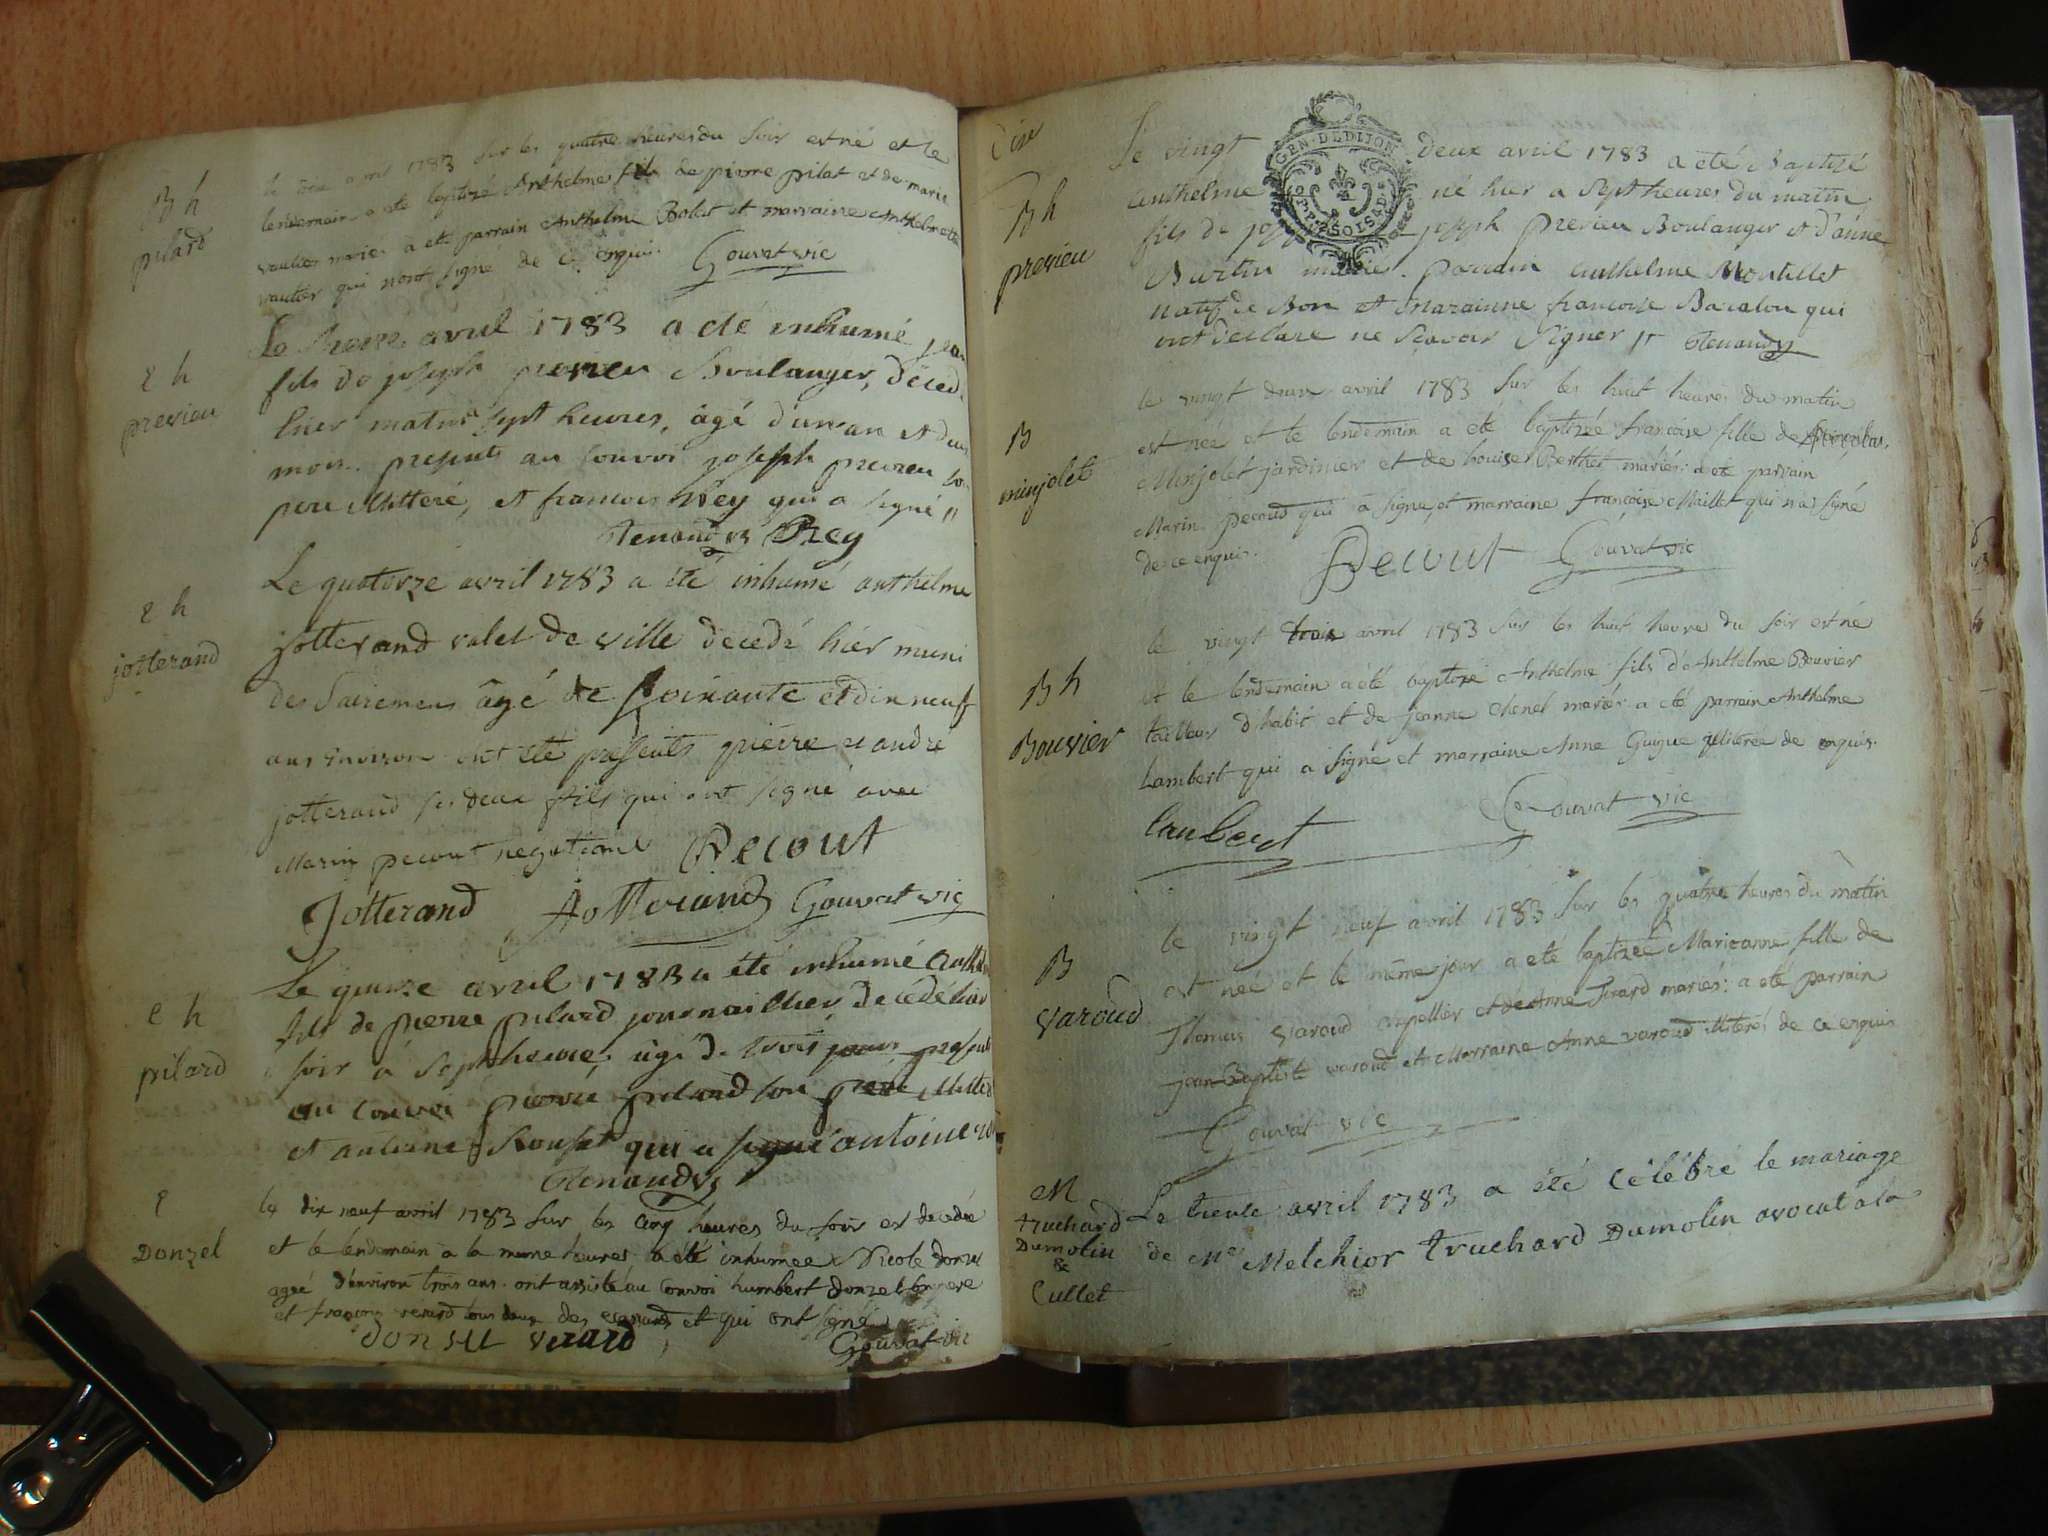 B h
pilard
avril 1783 sur les quatre heures du soir est né et le
lendemain a été baptizé Anthelme fils de pierre pilat et de marie
vautier mariés a été parrain Anthelme Bolet et marraine Anthelmette
vautier qui n'ont signé de ce enquis. Gouvat vic
e h
previeu
Le treize avril 1783 a été inhumé jean
fils de joseph previeu Boulanger, déced
hier matin à sept heures, âgé d'un an et d'un
mois. presents au convoi joseph previeu son
pere illitteré, et francois Rey qui a signé //
Renaud Rey
e h
jotterand
Le quatorze avril 1783 a été inhumé anthelme
jotterand valet de ville decedé hier muni
des Sacremens âgé de soixante et dix neuf
ans environ ont eté presents pierre et andré
jotterand ses deux fils qui ont signé avec
Marin pecout negotiant Pecout
Jotterand Jotterand Gouvat vic
e h
pilard
Le quinze avril 1783 a été inhumé Anthelme
fils de pierre pilard journaillier, decédé hier
soir à sept heures, âgé de trois jours present
au convoi pierre pilard son père illiteré
et antoine Rouset qui a signé antoine
Renaud
e
Donzel
le dix neuf avril 1783 sur les cinq heures du soir est decedée
et le lendemain a la meme heures a été inhumée Nicole donzel
agée d'environ trois ans. ont assisté au convoi humbert donzel son pere
et françois verard tous deux des ecassards et qui ont signé
donzel verard Gouvat vic
B h
previeu
Le vingt GEN · DE DIJON deux avril 1783 a été Baptizé
anthelme né hier a sept heures du matin
fils de joseph previeu Boulanger et d'anne
Burtin mariés. parrain anthelme Montillet
natif de Bon et marainne francoise Bacalon qui
ont declaré ne scavoir signer // Renaud
B
minjolet
le vingt deux avril 1783 sur les huit heures du matin
est née et le lendemain a été baptizée francoise fille de
Minjolet jardinier et de Louise Berthet mariés: a été parrain
Marin pecoud qui a signé, et marraine francoise Maillet qui n'a signé
de ce enquis. Pecout Gouvat vic
B h
Bouvier
le vingt trois avril 1783 sur les huit heure du soir est né
et le lendemain a été baptizé Anthelme fils d'Anthelme Bouvier
tailleur d'habit et de jeanne chenel mariés: a été parrain Anthelme
Lambert qui a signé et marraine Anne Guigue illiterée de enquis.
lambert Gouvat vic
B
varoud
le vingt neuf avril 1783 sur les quatre heures du matin
est née et le même jour a été baptizée Marieanne fille de
Thomas varoud chapellier et de Anne Girard mariés: a été parrain
jean Baptiste varoud et Marraine Anne varoud illiterés de ce enquis
Gouvat vic
M
truchard
Dumolin
&
Cullet
Le trente avril 1783 a été Célébré le mariage
de Me Melchior truchard Dumolin avocat à la